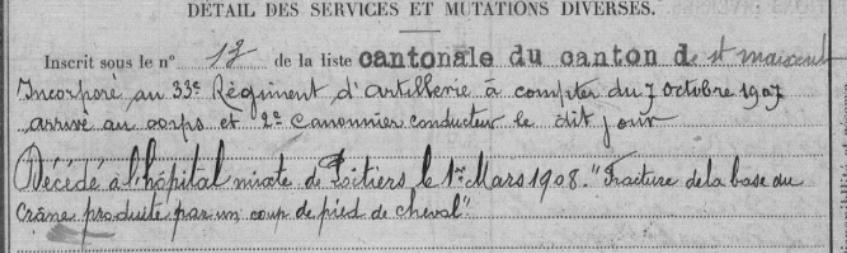 DÉTAIL DES SERVICES ET MUTATIONS DIVERSES.
Inscrit sous le n° 17 de la liste cantonale du canton de St Maixent
Incorporé au 33e Régiment d'artillerie à compter du 7 octobre 1907
arrivé au corps et 2e Canonnier conducteur le dit jour
Décédé à l'hôpital mixte de Poitiers le 1er Mars 1908. "Fracture de la base du
Crâne produite par un coup de pied de cheval"